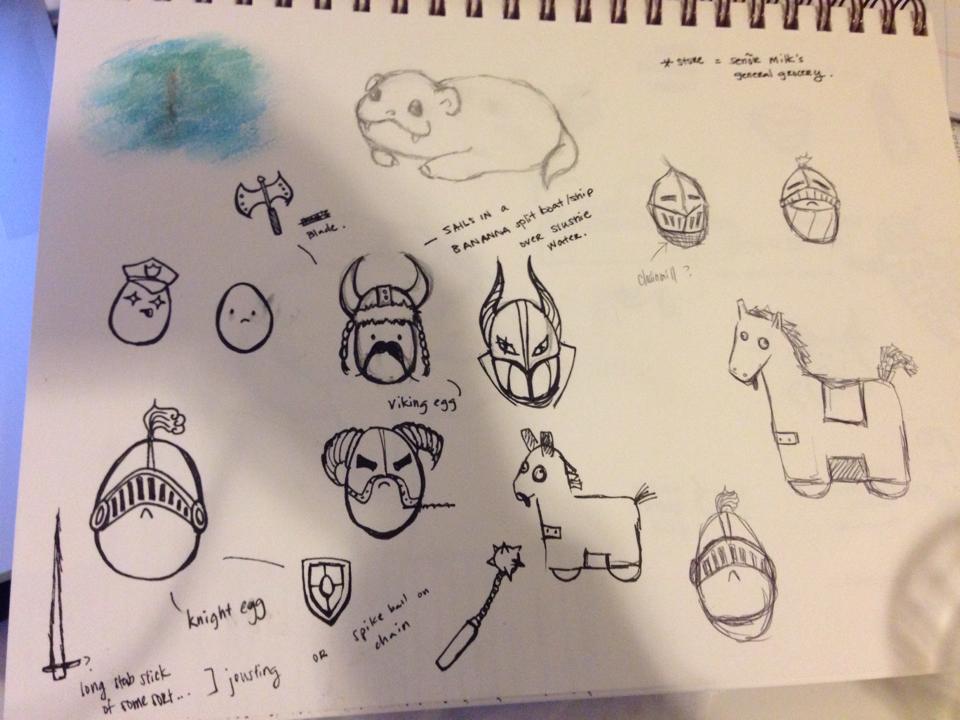 * store = señor Milk's
general grocery.
Blade.
— SAILS IN A
BANANNA split boat/ship
over slushie
water.
chainmill ?
viking egg
knight egg
spike ball on
chain
OR
?
long stab stick
of some sort...
] jousting